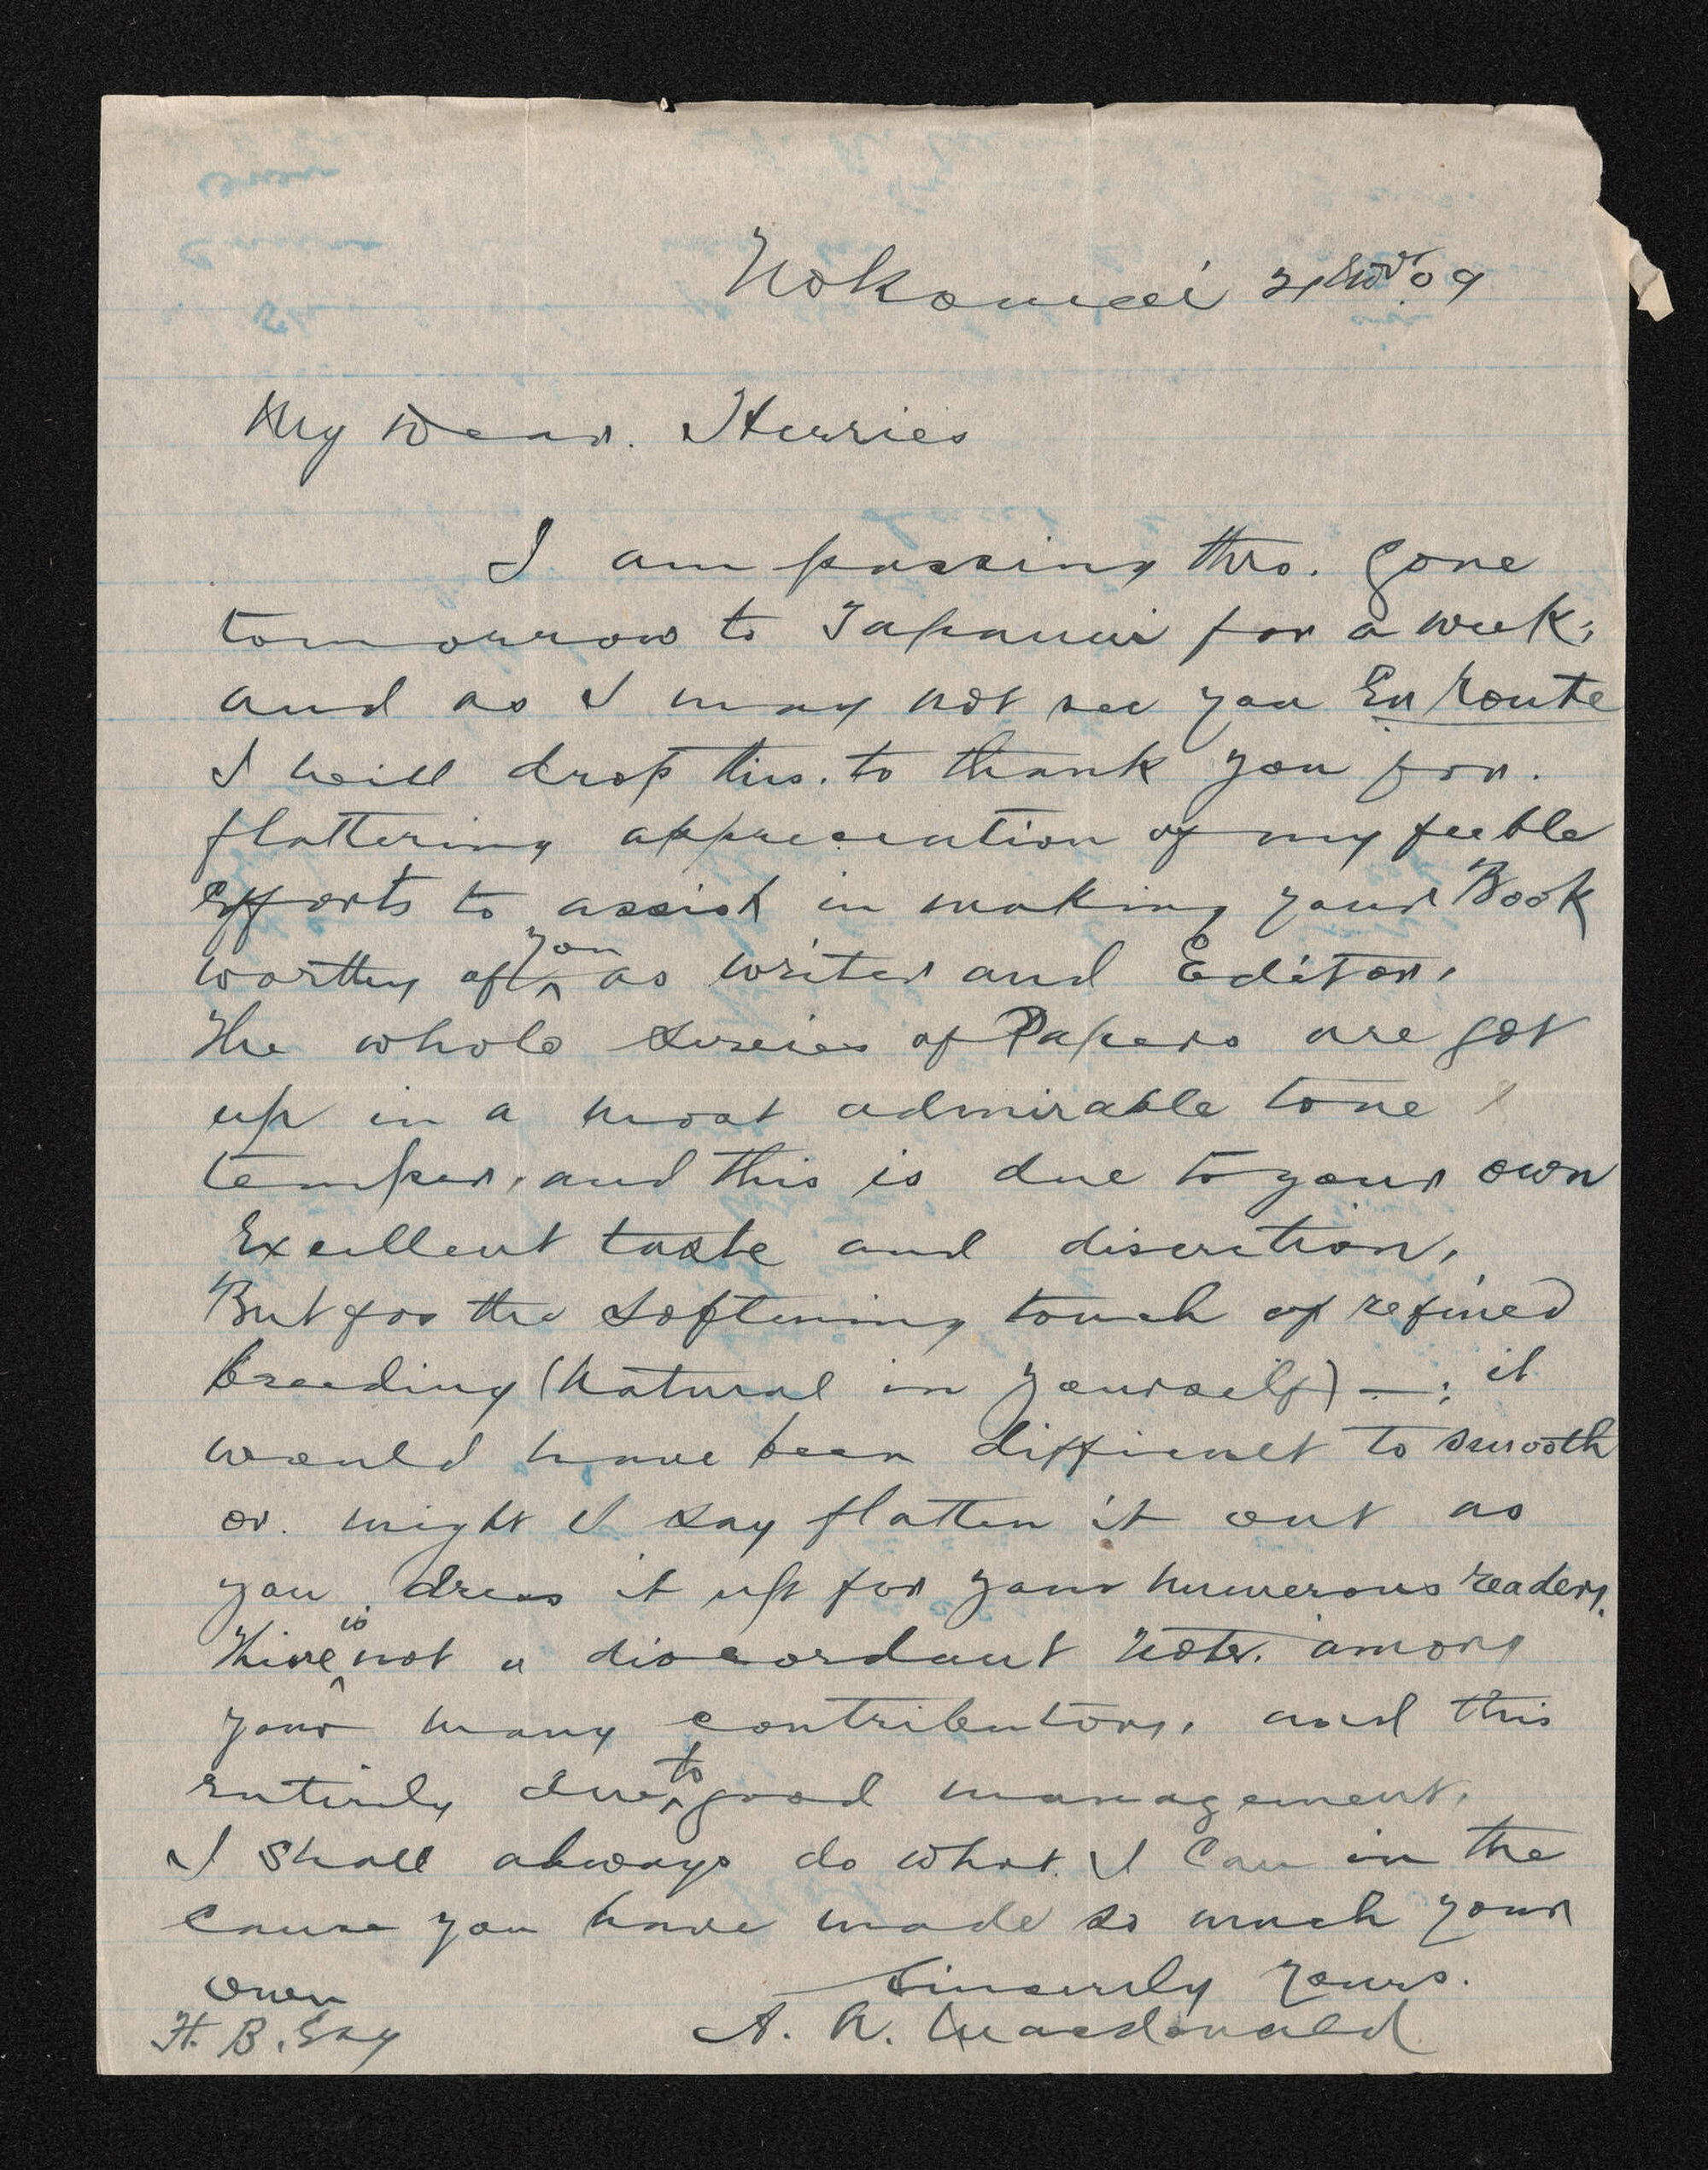 Nokomai 21 Novr 09
My Dear. Herries
I am passing thro. Gore
tomorrow to Tapanui for a week;
and as I may not see you En Route
I will drop this. to thank you for.
flattering appreciation of my feeble
efforts to assist in making your Book
worthy of you as writer and Editor,
The whole series of Papers are got
up in a most admirable tone &
temper, and this is due to your own
Excellent taste and discretion,
But for the softening touch of refined
breeding (natural in yourself) —; it
would have been difficult to smooth
or. might I say flatten it out as
you dress it up for your numerous readers.
There is not a discordant Note. among
your many contributors, and this
entirely due to good management,
I Shall always do what I Can in the
Cause you have made so much your
own
Sincerely Yours.
H. B. Esq
A. R. Macdonald